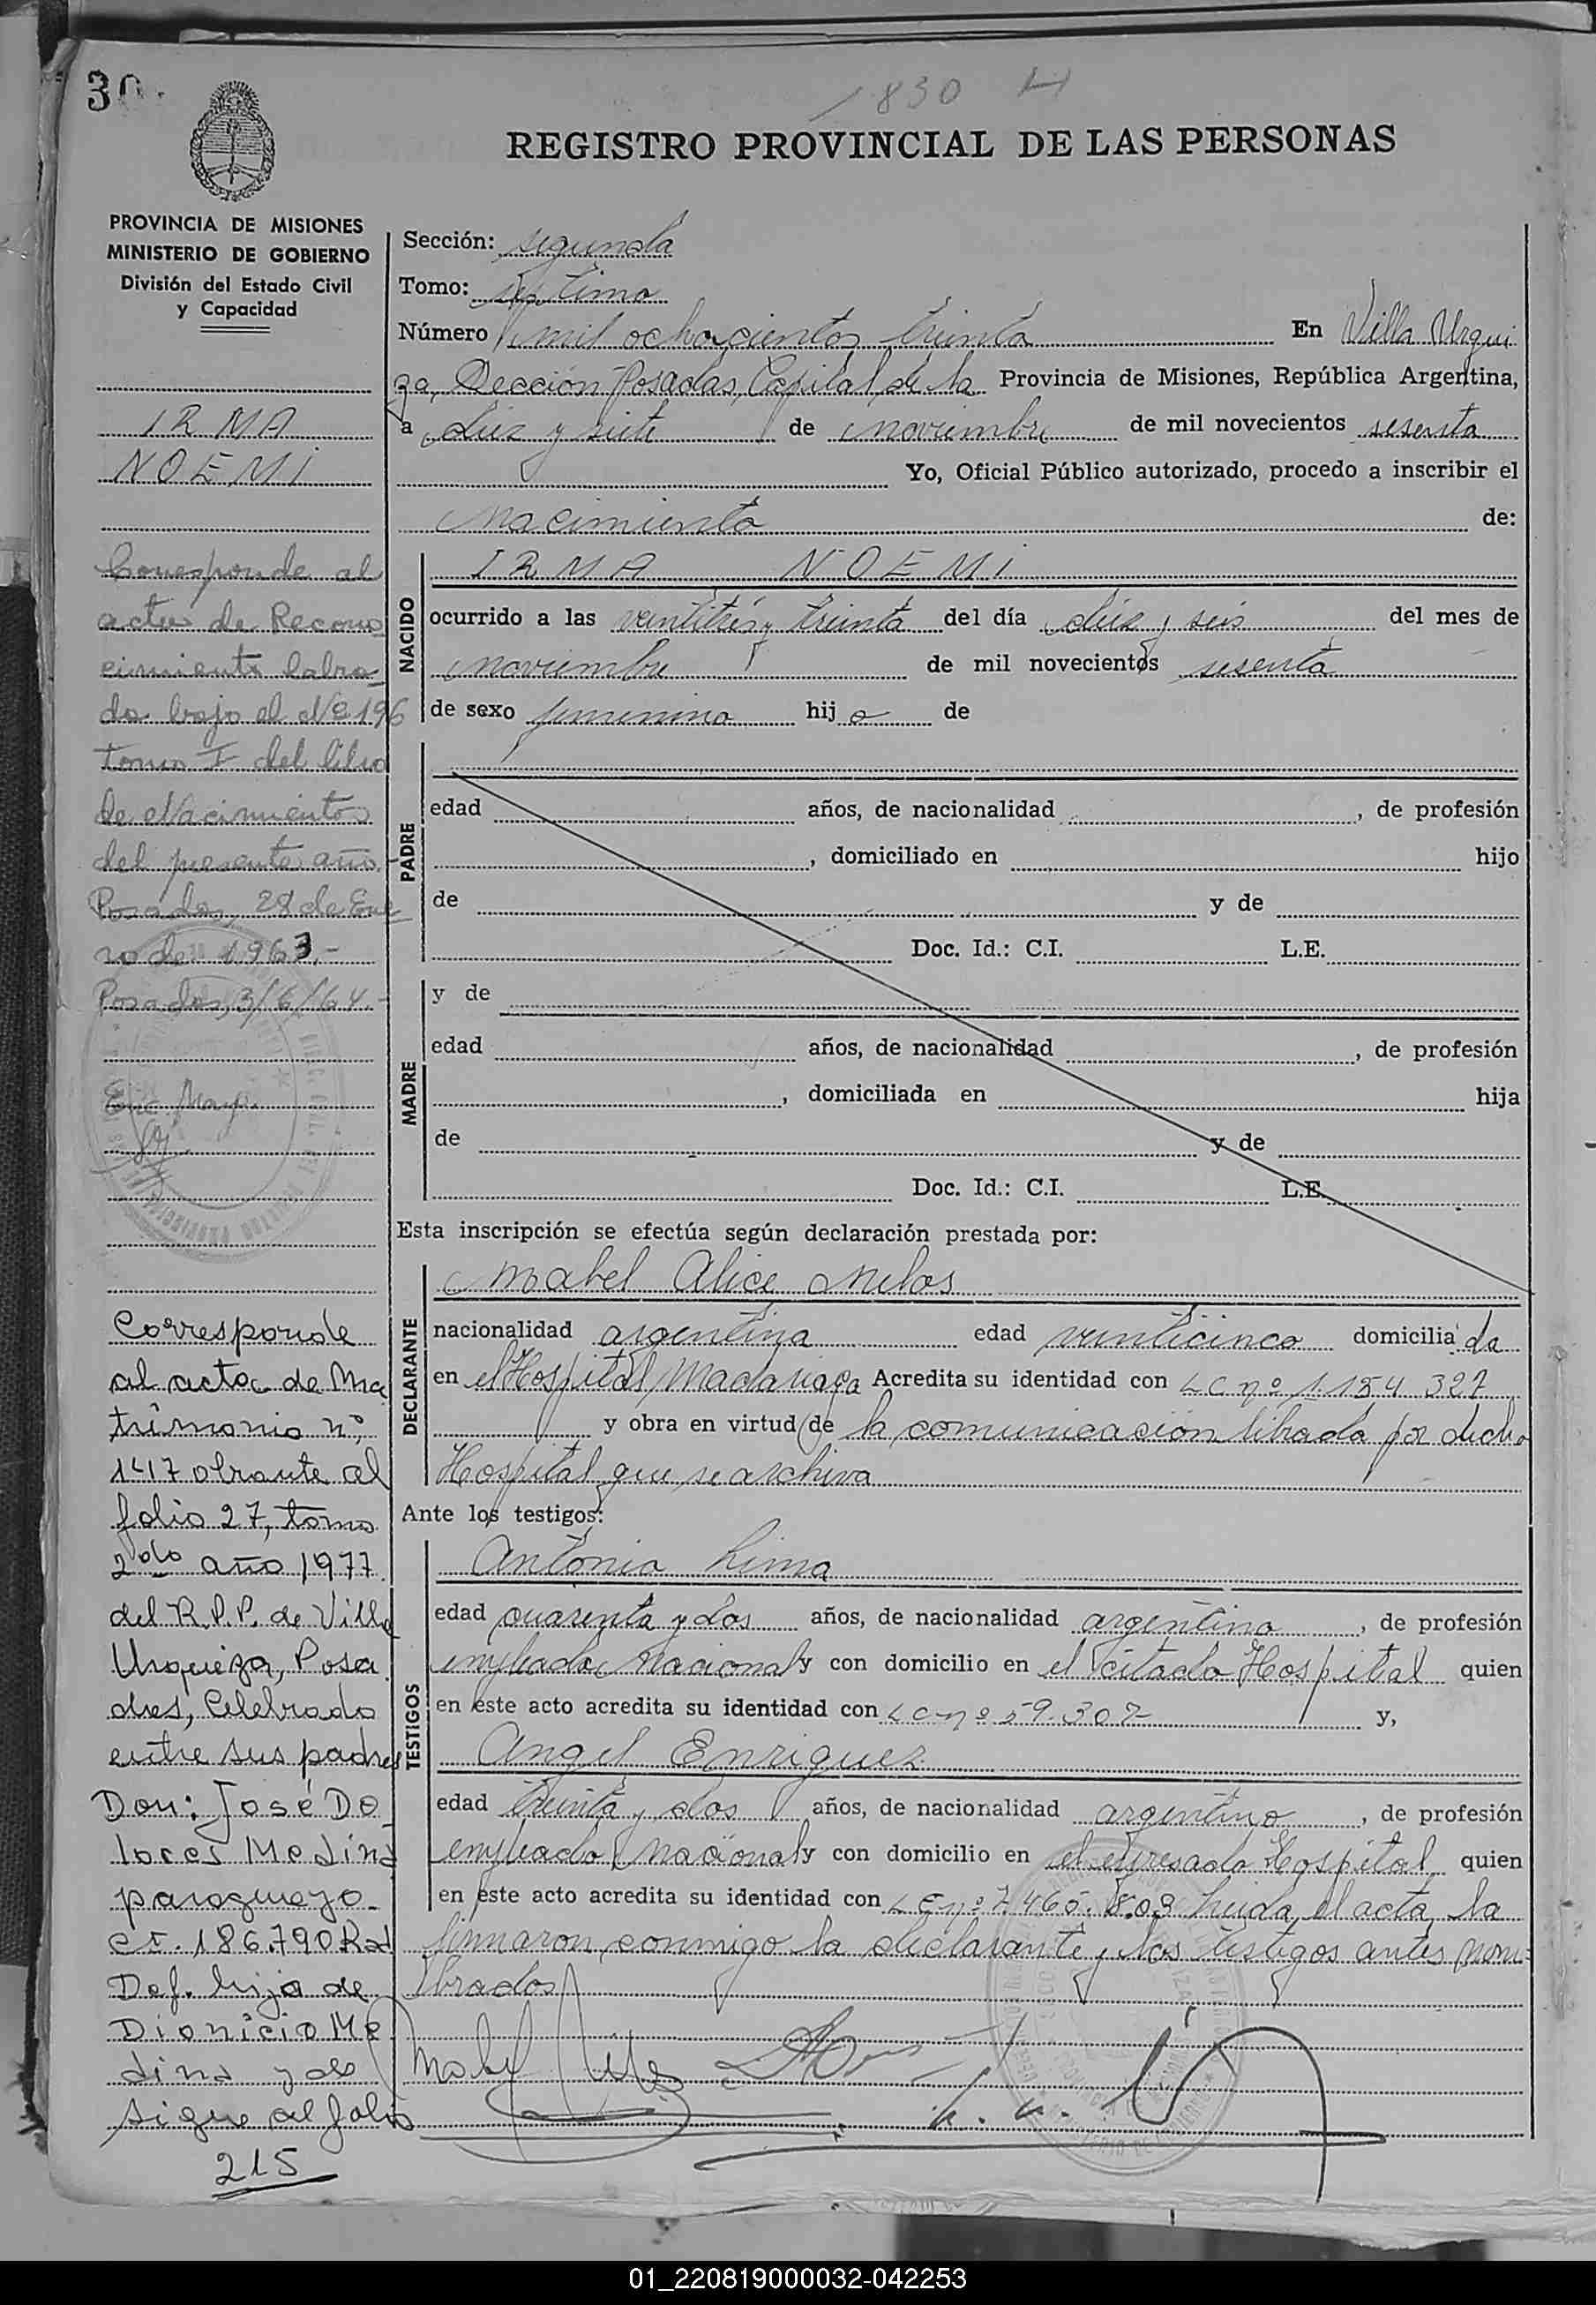 30.
1830
REGISTRO PROVINCIAL DE LAS PERSONAS
PROVINCIA DE MISIONES
MINISTERIO DE GOBIERNO
División del Estado Civil
y Capacidad
IRMA
NOEMI
Corresponde al
acta de Recono
cimiento labra
do bajo el Nº 196
tomo I del libro
de Nacimientos
del presente año.-
Posadas, 28 de Ene
ro de 1963.-
Posadas, 3/6/64.-
Corresponde
al acta de Ma
trimonio nº
1417 obrante al
folio 27, tomo
2do año 1977
del R.P.P. de Villa
Urquiza, Posa
das, Celebrado
entre sus padres
Don: José Do
lores Medina
paraguayo.
C.I. 186.790 Rad
Def. hijo de
Dionicio Me
dina y de
sigue al folio
215
Sección: segunda
Tomo: séptimo
Número mil ochocientos treinta En Villa Urqui
za, Sección Posadas, Capital de la Provincia de Misiones, República Argentina,
a diez y siete de noviembre de mil novecientos sesenta
Yo, Oficial Público autorizado, procedo a inscribir el
nacimiento de:
NACIDO
IRMA NOEMI
ocurrido a las veintitrés y treinta del día diez y seis del mes de
noviembre de mil novecientos sesenta
de sexo femenino hij a de
PADRE
edad años, de nacionalidad , de profesión
, domiciliado en hijo
de y de
Doc. Id.: C.I. L.E.
MADRE
y de
edad años, de nacionalidad , de profesión
, domiciliada en hija
de y de
Doc. Id.: C.I. L.E.
Esta inscripción se efectúa según declaración prestada por:
DECLARANTE
Mabel Alice Melos
nacionalidad argentina edad veinticinco domicilia da
en el Hospital Madariaga Acredita su identidad con L C nº 1.154 327
y obra en virtud de la comunicación librada por dicho
Hospital que se archiva
Ante los testigos:
TESTIGOS
Antonia Lima
edad cuarenta y dos años, de nacionalidad argentina , de profesión
empleada nacional y con domicilio en el citado Hospital quien
en este acto acredita su identidad con L C nº 59.307 y,
Angel Enriquez
edad treinta y dos años, de nacionalidad argentino , de profesión
empleado nacional y con domicilio en el expresado Hospital quien
en este acto acredita su identidad con L E nº 7 465.803 Leida el acta, la
firmaron conmigo la declarante y los testigos antes nom=
brados
01_220819000032-042253